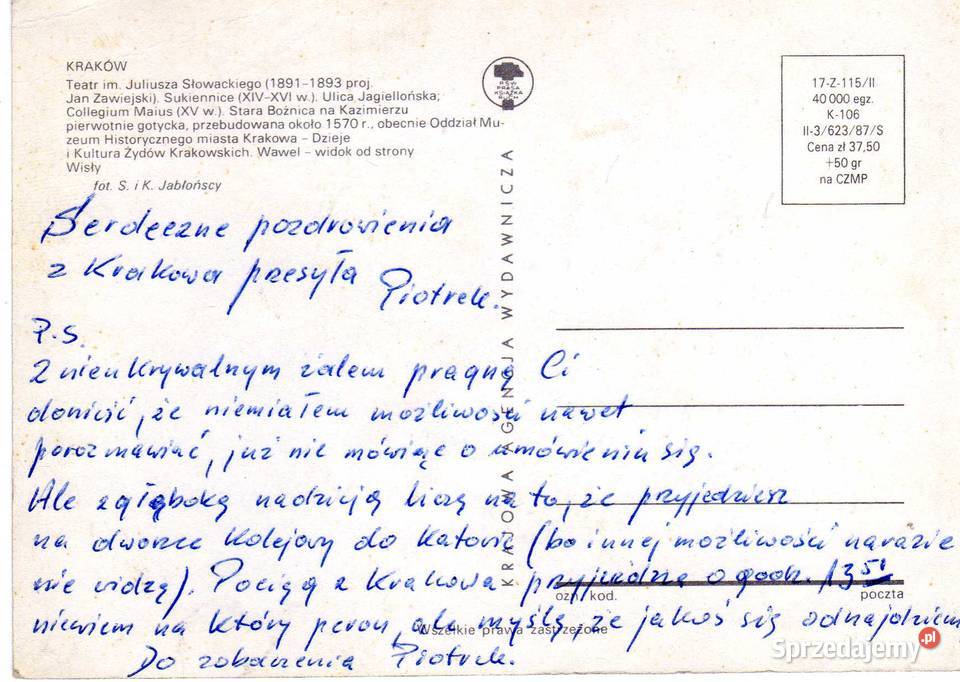 KRAKÓW
Teatr im. Juliusza Słowackiego (1891–1893 proj.
Jan Zawiejski). Sukiennice (XIV–XVI w.). Ulica Jagiellońska;
Collegium Maius (XV w.). Stara Bożnica na Kazimierzu
pierwotnie gotycka, przebudowana około 1570 r., obecnie Oddział Mu-
zeum Historycznego miasta Krakowa – Dzieje
i Kultura Żydów Krakowskich. Wawel – widok od strony
Wisły
fot. S. i K. Jabłońscy
RSW
PRASA
KSIĄŻKA
RUCH
17-Z-115/II
40 000 egz.
K-106
II-3/623/87/S
Cena zł 37,50
+50 gr
na CZMP
KRAJOWA AGENCJA WYDAWNICZA
Serdeczne pozdrowienia
z Krakowa przesyła
Piotrek.
P.S.
Z nieukrywalnym żalem pragnę Ci
donieść, że niemiałem możliwości nawet
porozmawiać, już nie mówiąc o umówieniu się.
Ale z głęboką nadzieją liczę na to, że przyjedziesz
na dworzec kolejowy do Katowic (bo innej możliwości narazie
nie widzę). Pociąg z Krakowa przyjeżdża o godz. 13 51
niewiem na który peron, ale myślę że jakoś się odnajdziem
Do zobaczenia Piotrek.
ozn. kod.
poczta
Wszelkie prawa zastrzeżone
Sprzedajemy.pl